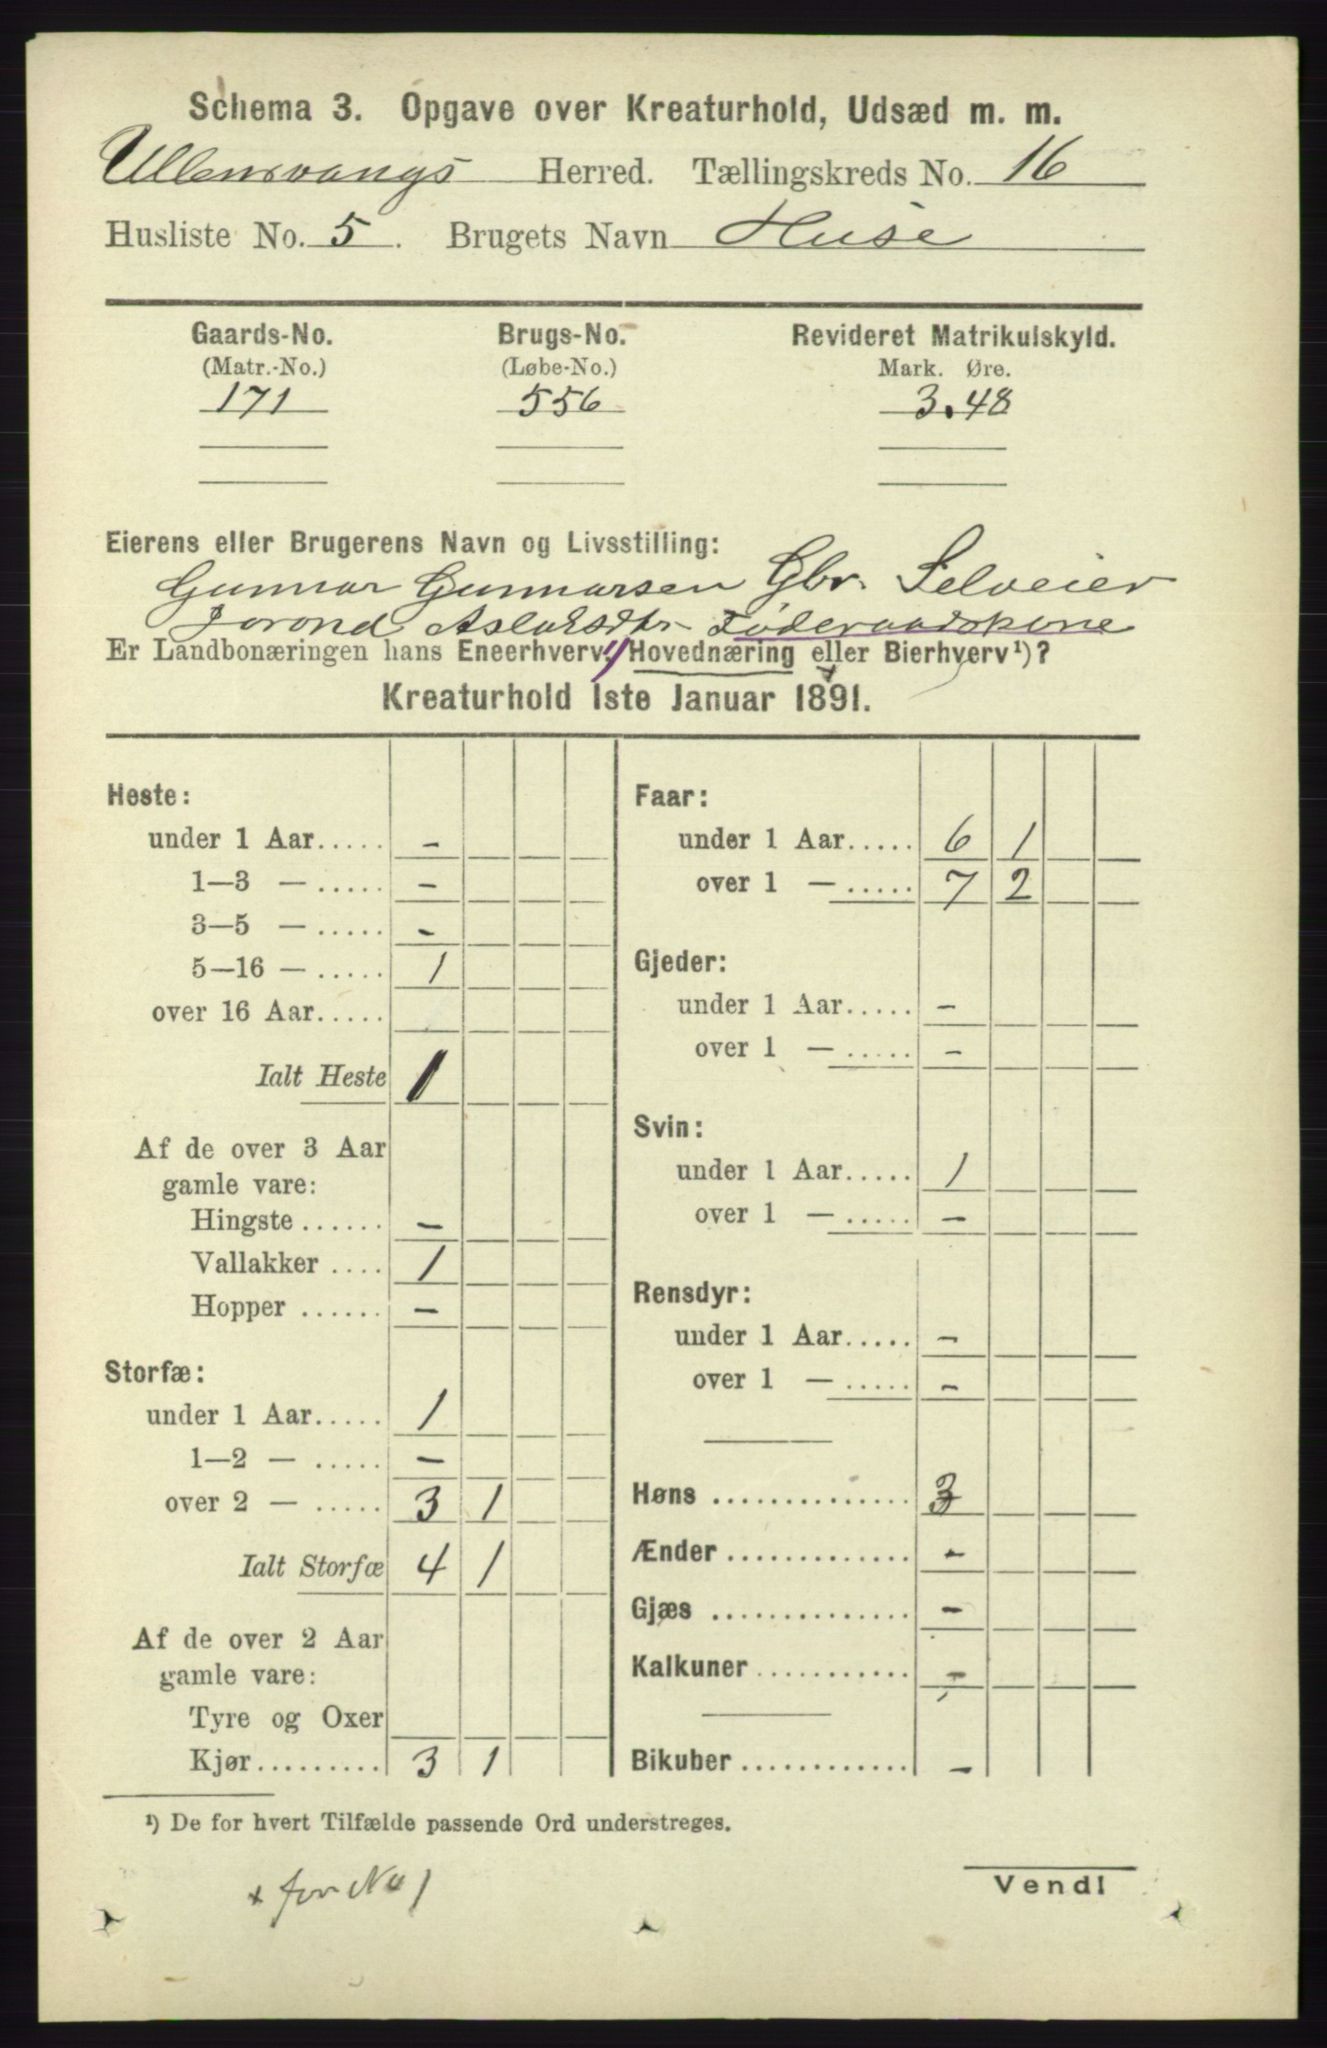 Schema 3. Opgave over Kreaturhold, Udsæd m. m.
Ullensvangs Herred. Tællingskreds No. 16
Husliste No. 5. Brugets Navn Huse
Gaards-No. Brugs-No. Revideret Matrikulskyld.
(Matr.-No.) (Løbe-No.) Mark. Øre.
171 556 3.48
Eierens eller Brugerens Navn og Livsstilling:
Gunnar Gunnarsen Gbr. Selveier
Jorond Aslaksdtr Føderaadskone
Er Landbonæringen hans Eneerhverv, Hovednæring eller Bierhverv ¹)?
Kreaturhold 1ste Januar 1891.
Heste:
under 1 Aar..... -
1—3 — ..... -
3—5 — ..... -
5—16 — ..... 1
over 16 Aar.....
Ialt Heste 1
Af de over 3 Aar
gamle vare:
Hingste ...... -
Vallakker .... 1
Hopper ...... -
Storfæ:
under 1 Aar..... 1
1—2 — ..... -
over 2 — ..... 3 1
Ialt Storfæ 4 1
Af de over 2 Aar
gamle vare:
Tyre og Oxer
Kjør......... 3 1
Faar:
under 1 Aar..... 6 1
over 1 — ..... 7 2
Gjeder:
under 1 Aar..... -
over 1 — ..... -
Svin:
under 1 Aar..... 1
over 1 — ..... -
Rensdyr:
under 1 Aar..... -
over 1 — ..... -
Høns .............. 3
Ænder ............. -
Gjæs .............. -
Kalkuner ........... -
Bikuber ............ -
¹) De for hvert Tilfælde passende Ord understreges.
Vend!
+ for No 1